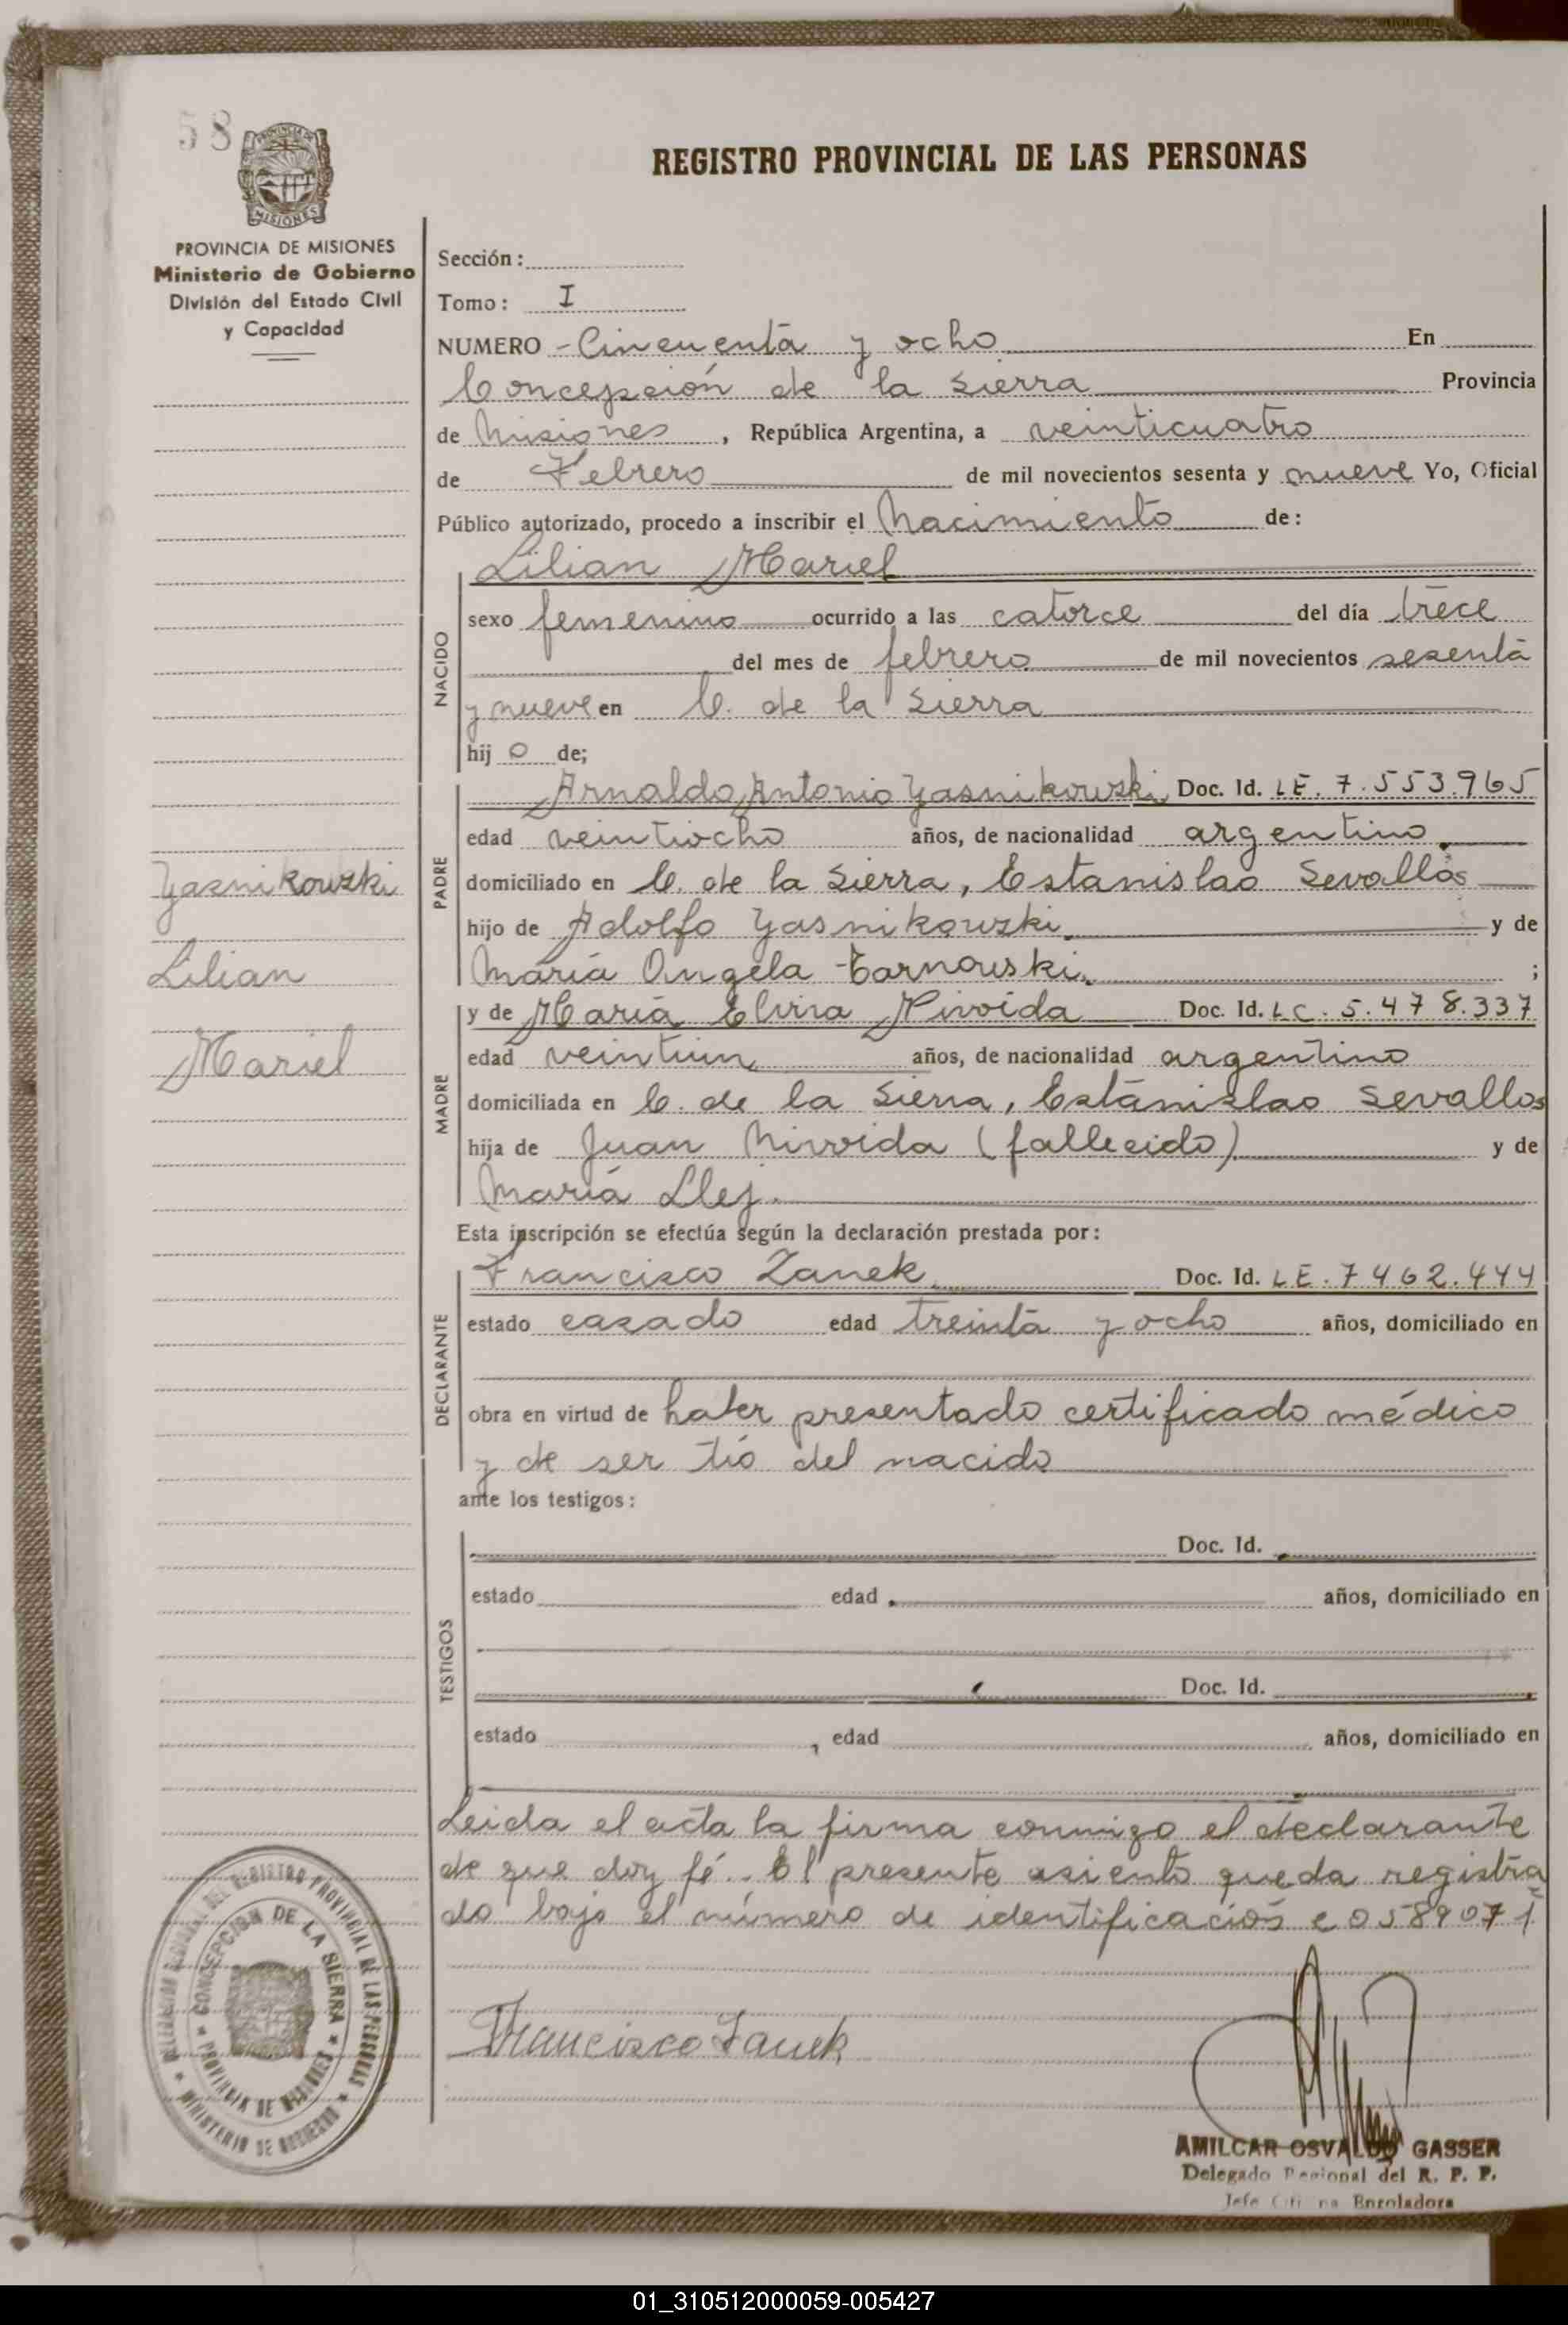 58
REGISTRO PROVINCIAL DE LAS PERSONAS
PROVINCIA DE MISIONES
Ministerio de Gobierno
División del Estado Civil
y Capacidad
Sección:
Tomo: I
NUMERO - Cincuenta y ocho En
Concepción de la Sierra Provincia
de Misiones, República Argentina, a veinticuatro
de Febrero de mil novecientos sesenta y nueve Yo, Oficial
Público autorizado, procedo a inscribir el Nacimiento de:
Lilian Mariel
NACIDO
sexo femenino ocurrido a las catorce del día trece
del mes de febrero de mil novecientos sesenta
y nueve en C. de la Sierra
hij o de;
PADRE
Arnaldo Antonio Yasnikowski Doc. Id. LE. 7.553.965
edad veintiocho años, de nacionalidad argentino
domiciliado en C. de la Sierra, Estanislao Sevallos
hijo de Adolfo Yasnikowski y de
María Angela Tarnowski ;
Yasnikowski
Lilian
Mariel
MADRE
y de María Elvira Doc. Id. LC. 5.478.337
edad veintiun años, de nacionalidad argentino
domiciliada en C. de la Sierra, Estanislao Sevallos
hija de Juan (fallecido) y de
María Llej.
Esta inscripción se efectúa según la declaración prestada por:
DECLARANTE
Francisco Zanek Doc. Id. LE. 7462.444
estado casado edad treinta y ocho años, domiciliado en
obra en virtud de haber presentado certificado médico
y de ser tío del nacido
ante los testigos:
TESTIGOS
Doc. Id.
estado edad años, domiciliado en
Doc. Id.
estado , edad años, domiciliado en
Leida el acta la firma conmigo el declarante
de que doy fé.. El presente asiento queda registra
do bajo el número de identificación e 0589071
DELEGACION REGIONAL DEL REGISTRO PROVINCIAL DE LAS PERSONAS
MINISTERIO DE GOBIERNO
CONCEPCION DE LA SIERRA
PROVINCIA DE MISIONES
Francisco Zanek
AMILCAR OSVALDO GASSER
Delegado Regional del R. P. P.
Jefe Enroladora
01_310512000059-005427